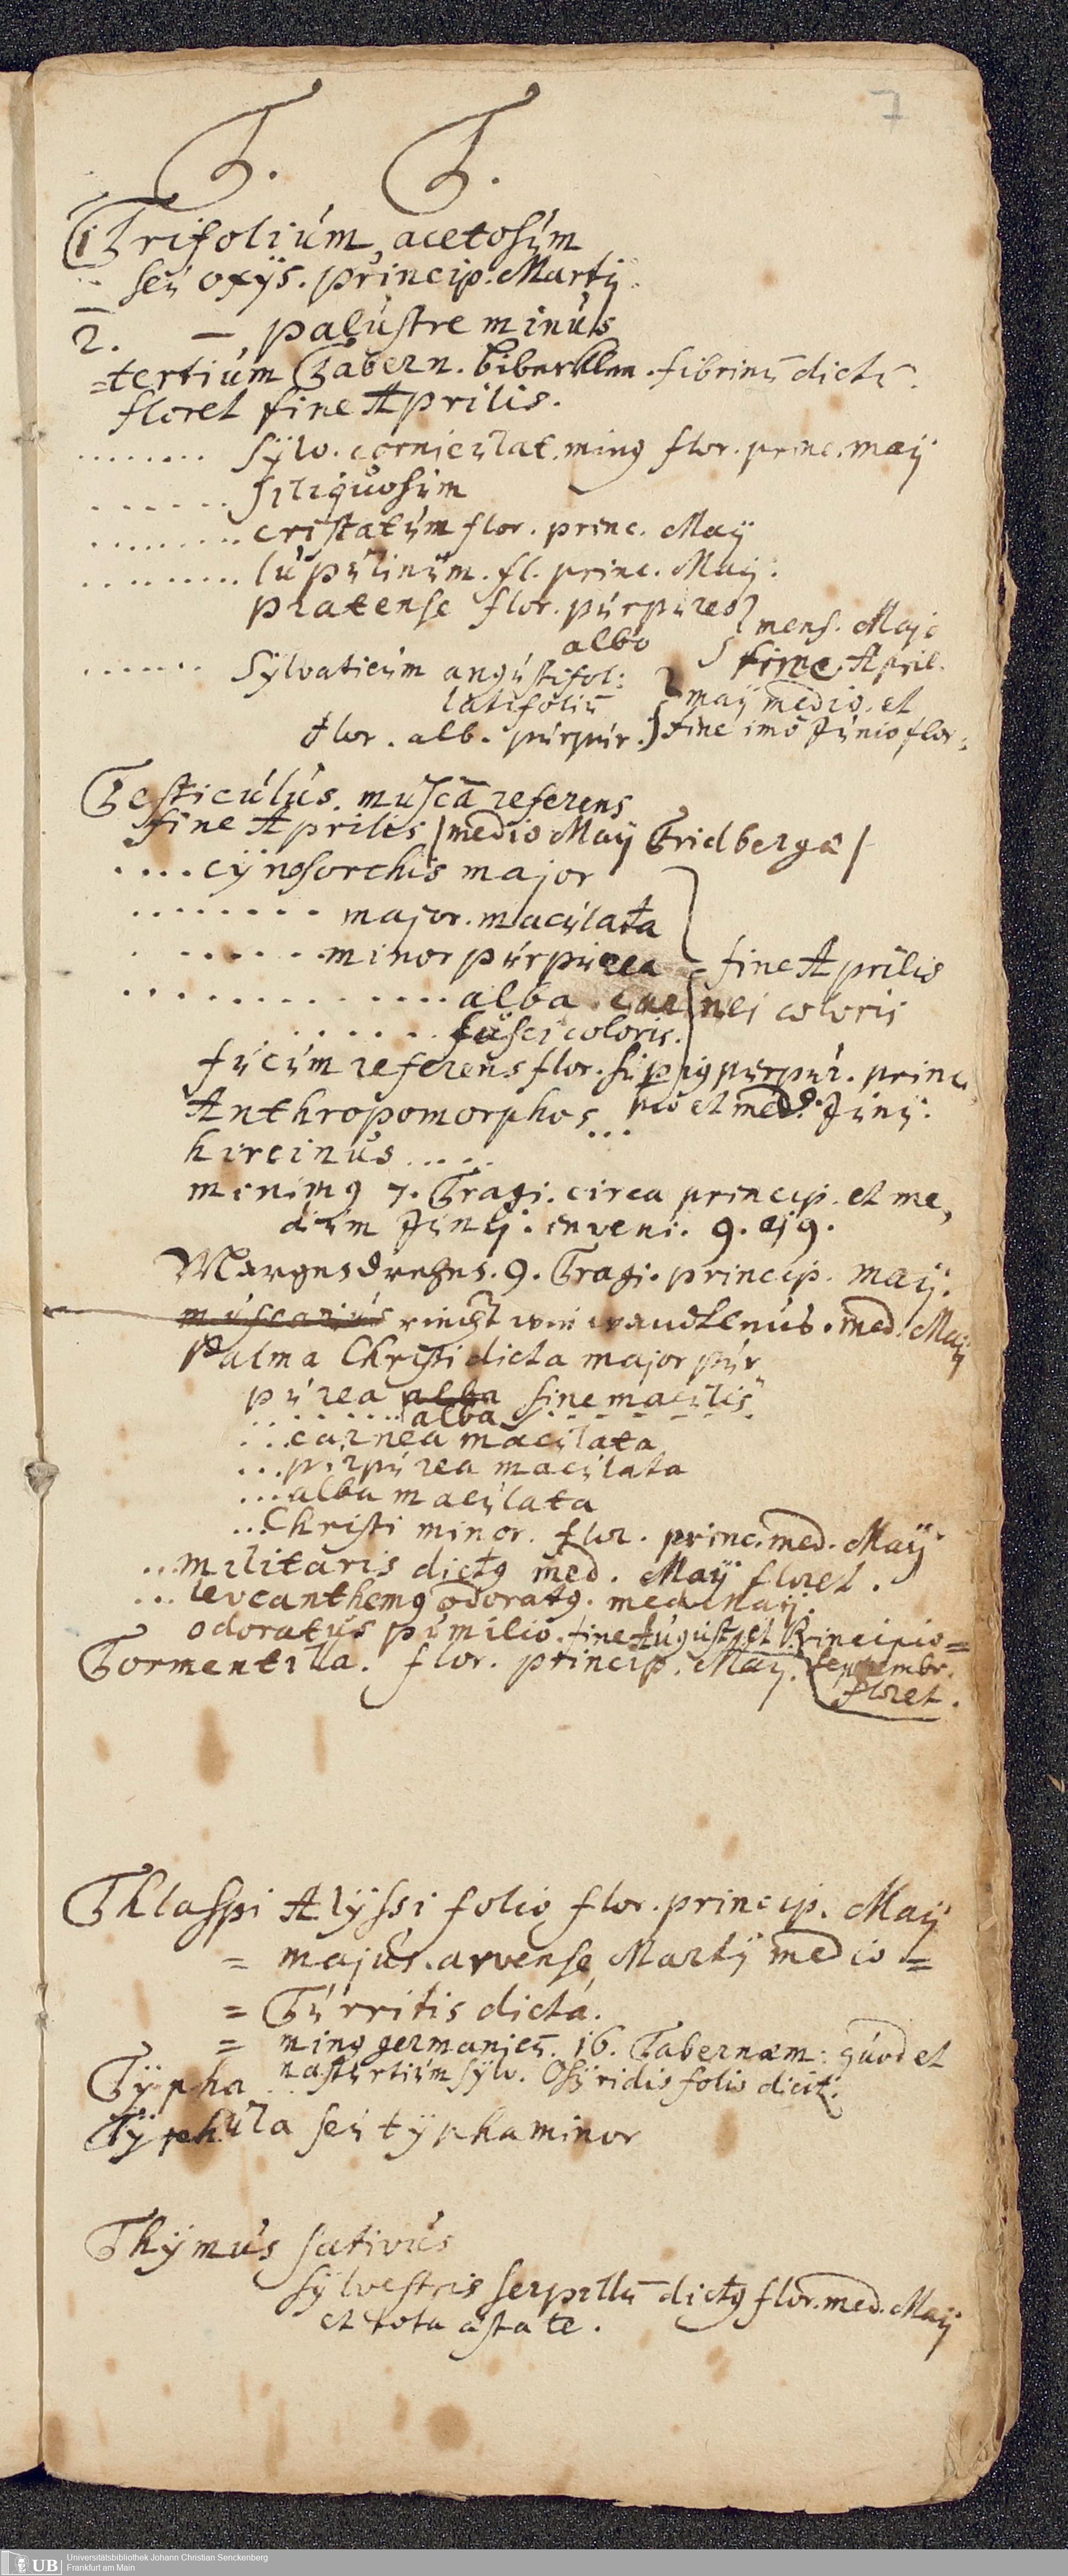 7
T. T.
1 Trifolium, acetosum
seu oxys. princip. Martij.
2. — palustre minus
=tertium Tabern. Biberklee. fibrinū dictū.
floret fine Aprilis.
........ sylv. corniculat. minq flor. princ. maij
....... siliquosum
......... cristatum flor. princ. Maij
.......... lupulinum. fl. princ. Maij.
pratense flor. purpureo } mens. Majo
albo } fine April.
....... Sylvaticum angustifol: } maij medio. et
latifoliū
flor. alb. purpur. } fine imo Junio flor.
Testiculus. muscā referens
fine Aprilis / medio Maij Fridbergæ /
.... cynosorchis major
........ major. maculata
........ minor purpurea = fine Aprilis
.............. alba. carnei coloris
....... fusci coloris.
fucum referens flor. purpur. princi
pio et med. Junij.
Anthropomorphos ...
hircinus .....
minimq 7. Tragi. circa princip. et me,
dium Junij. inveni. 9. ejq.
9. Tragi. princip. maij.
muscarius riecht wie wandleus. med. Maij
Palma Christi dicta major pur
purea alba sine maculis
....... alba
... carnea maculata
... purpurea maculata
... alba maculata
.. Christi minor. flor. princ. med. Maij
... militaris dictq med. Maij floret.
... leucanthemq odoratq. med. Maij.
odoratus pumilio. fine August, et Principio =
Tormentilla. flor. princip. Maij. Septembr.
floret.
Thlaspi Alyssi folio flor. princip. Maij
= majus. arvense, Martij medio =
= Turritis dicta.
= minq germanicū. 16. Tabernæm: quod et
Typha nasturtium sylv. Osyridis folio dicit.
Typhula seu typha minor
Thymus sativus
sylvestris serpillū dictq flor. med. Maij
et tota æstate.
UB Universitätsbibliothek Johann Christian Senckenberg
Frankfurt am Main